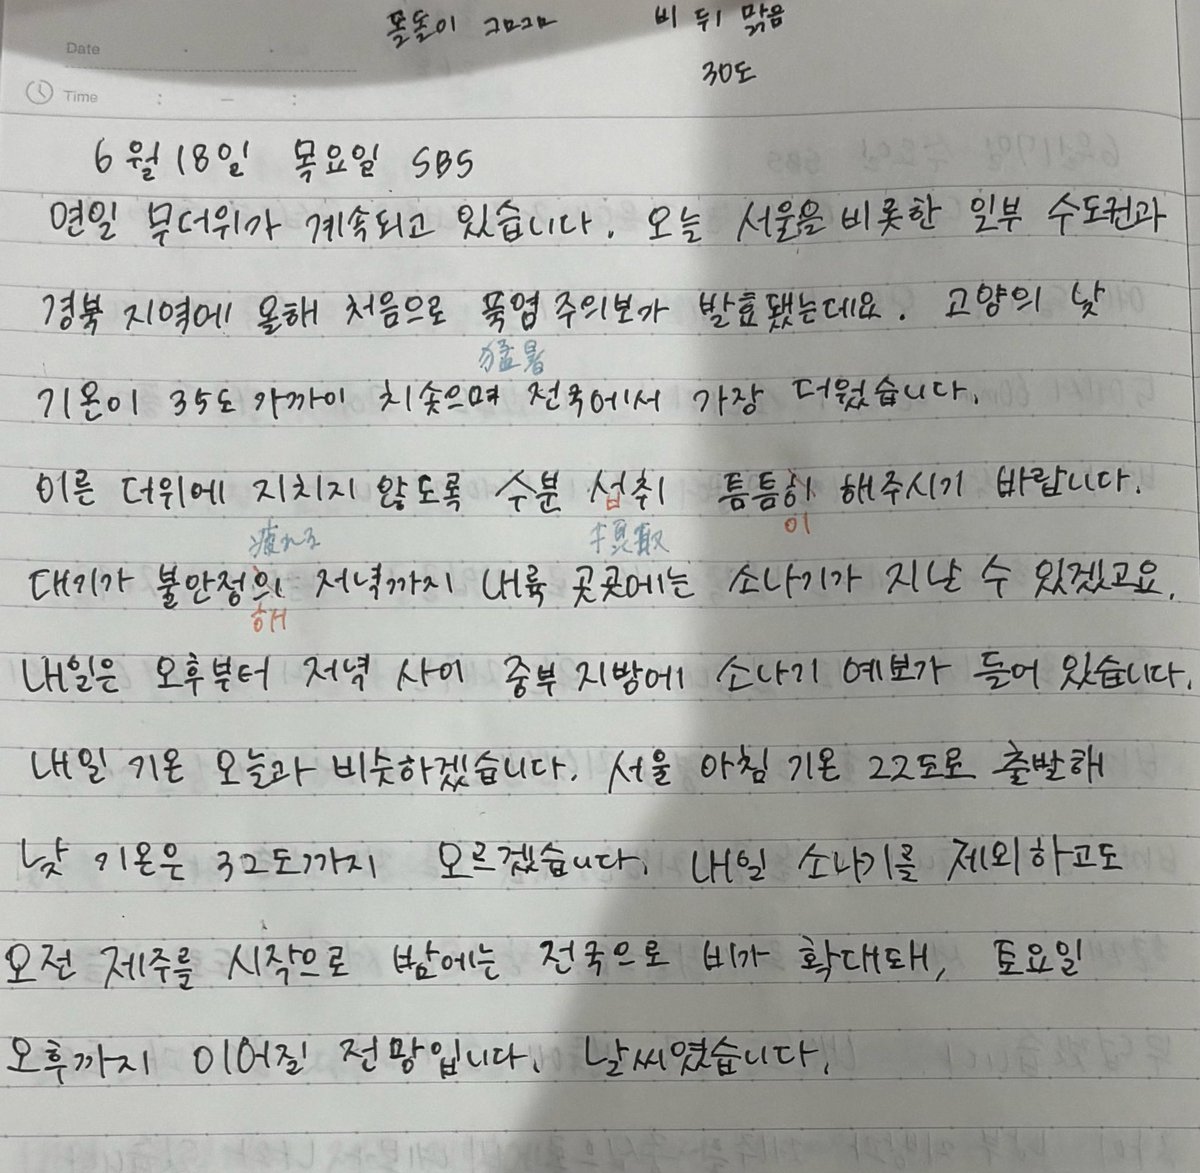 Date
똘똘이 근근 비 뒤 맑음
Time : — :
30도
6월 18일 목요일 SBS
연일 무더위가 계속되고 있습니다. 오늘 서울을 비롯한 일부 수도권과
경북 지역에 올해 처음으로 폭염 주의보가 발효됐는데요. 고양의 낮
猛暑
기온이 35도 가까이 치솟으며 전국에서 가장 더웠습니다.
이른 더위에 지치지 않도록 수분 섭취 틈틈히 해주시기 바랍니다.
疲れる 摂取 이
대기가 불안정의 저녁까지 내륙 곳곳에는 소나기가 지난 수 있겠고요.
해
내일은 오후부터 저녁 사이 중부 지방에 소나기 예보가 들어 있습니다.
내일 기온 오늘과 비슷하겠습니다. 서울 아침 기온 22도로 출발해
낮 기온은 32도까지 오르겠습니다. 내일 소나기를 제외하고도
오전 제주를 시작으로 밤에는 전국으로 비가 확대돼, 토요일
오후까지 이어질 전망입니다. 날씨였습니다.